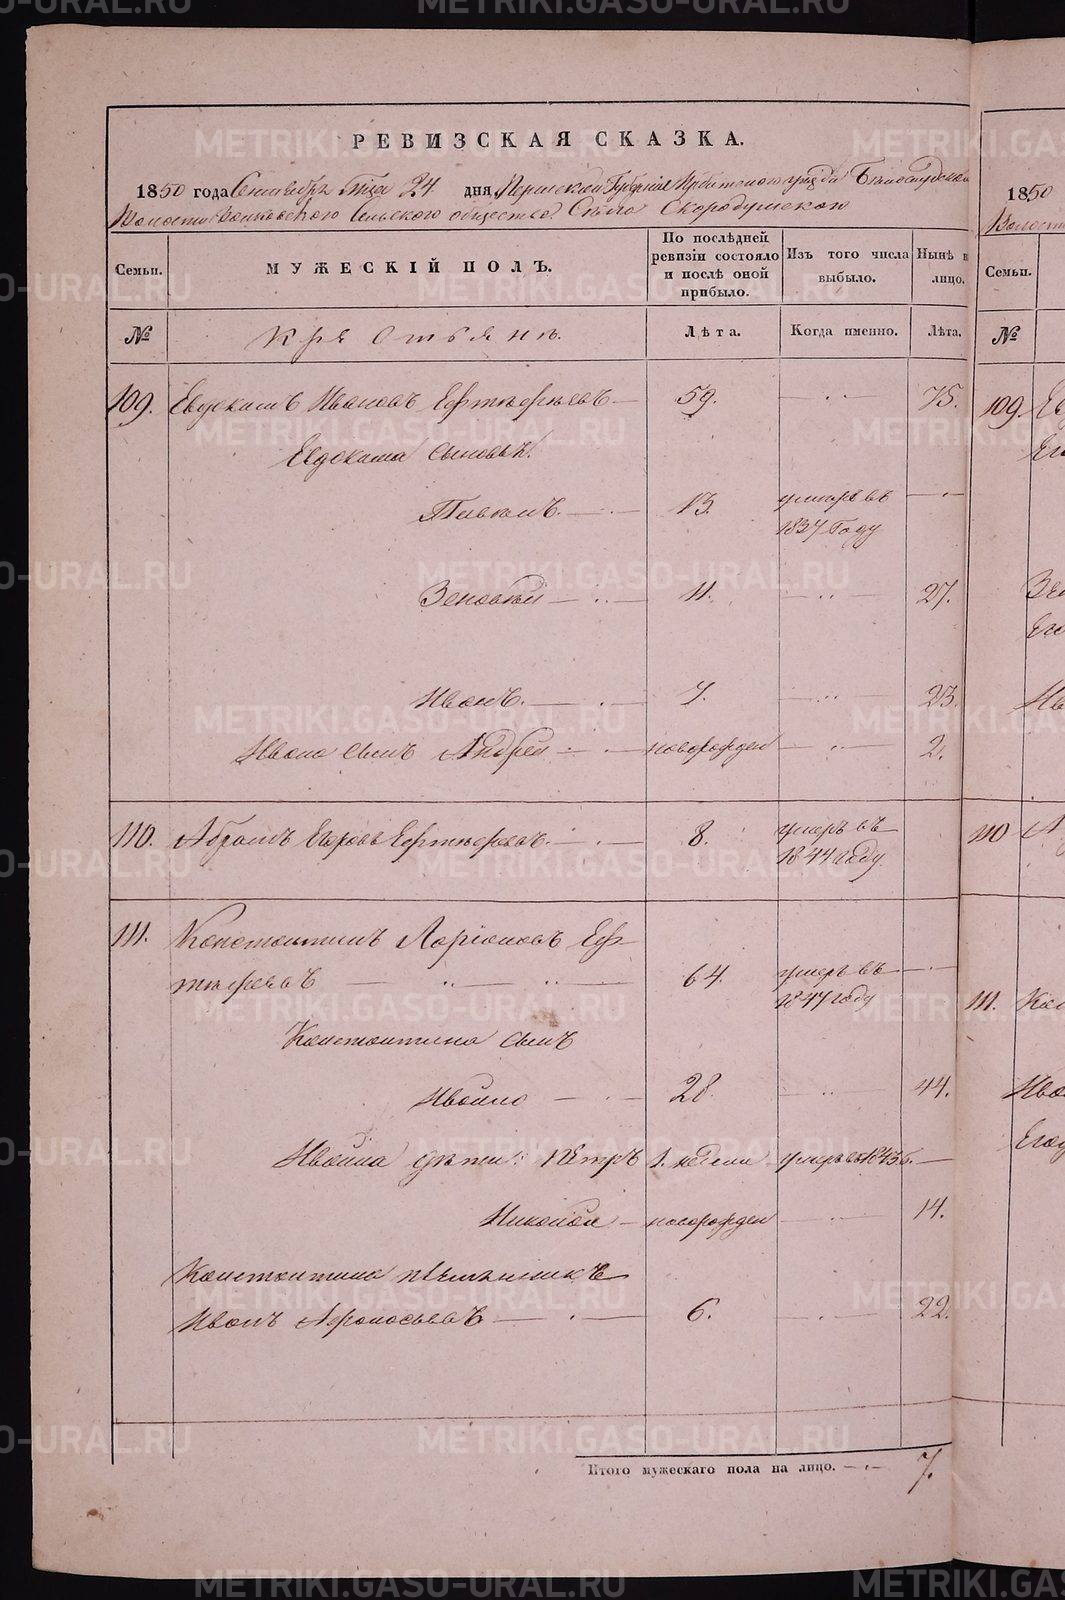 РЕВИЗСКАЯ СКАЗКА.
1850 года Сентября м-ца 24 дня Пермской Губернии Ирбитского уезда Белослудской
Волости Волковского Сельского общества Села Скородумского
Семьи.
МУЖЕСКІЙ ПОЛЪ.
По послѣдней ревизіи состояло и послѣ оной прибыло.
Изъ того числа выбыло.
Нынѣ на лицо.
№
Крестьяне.
Лѣта.
Когда именно.
Лѣта.
109. Евдокимъ Ивановъ Ефтифѣевъ 59. 75.
Евдокима сыновья:
Пименъ 13. умеръ въ
1837 Году
Зеновей 11. 27.
Иванъ 7. 23.
Ивана сынъ Андрей новорожден 2.
110. Абрамъ Егоровъ 8. умеръ въ
1844 году
111. Константинъ Ларіоновъ Еф
64. умеръ въ
1847 году
Константина сынъ
Ивойло 28. 44.
Ивойла дѣти: Петръ 1. недели умеръ въ 1835 г.
Николай новорожден 14.
Константина племянникъ
Иванъ Афонасьевъ 6. 22.
Итого мужескаго пола на лицо. 7.
1850
Волости
Семьи.
№
109.
110
111.
METRIKI.GASO-URAL.RU